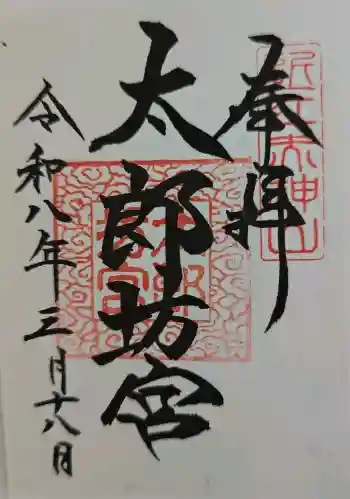 奉拝
近江赤神山
太郎坊宮
太郎坊宮
令和八年三月十八日